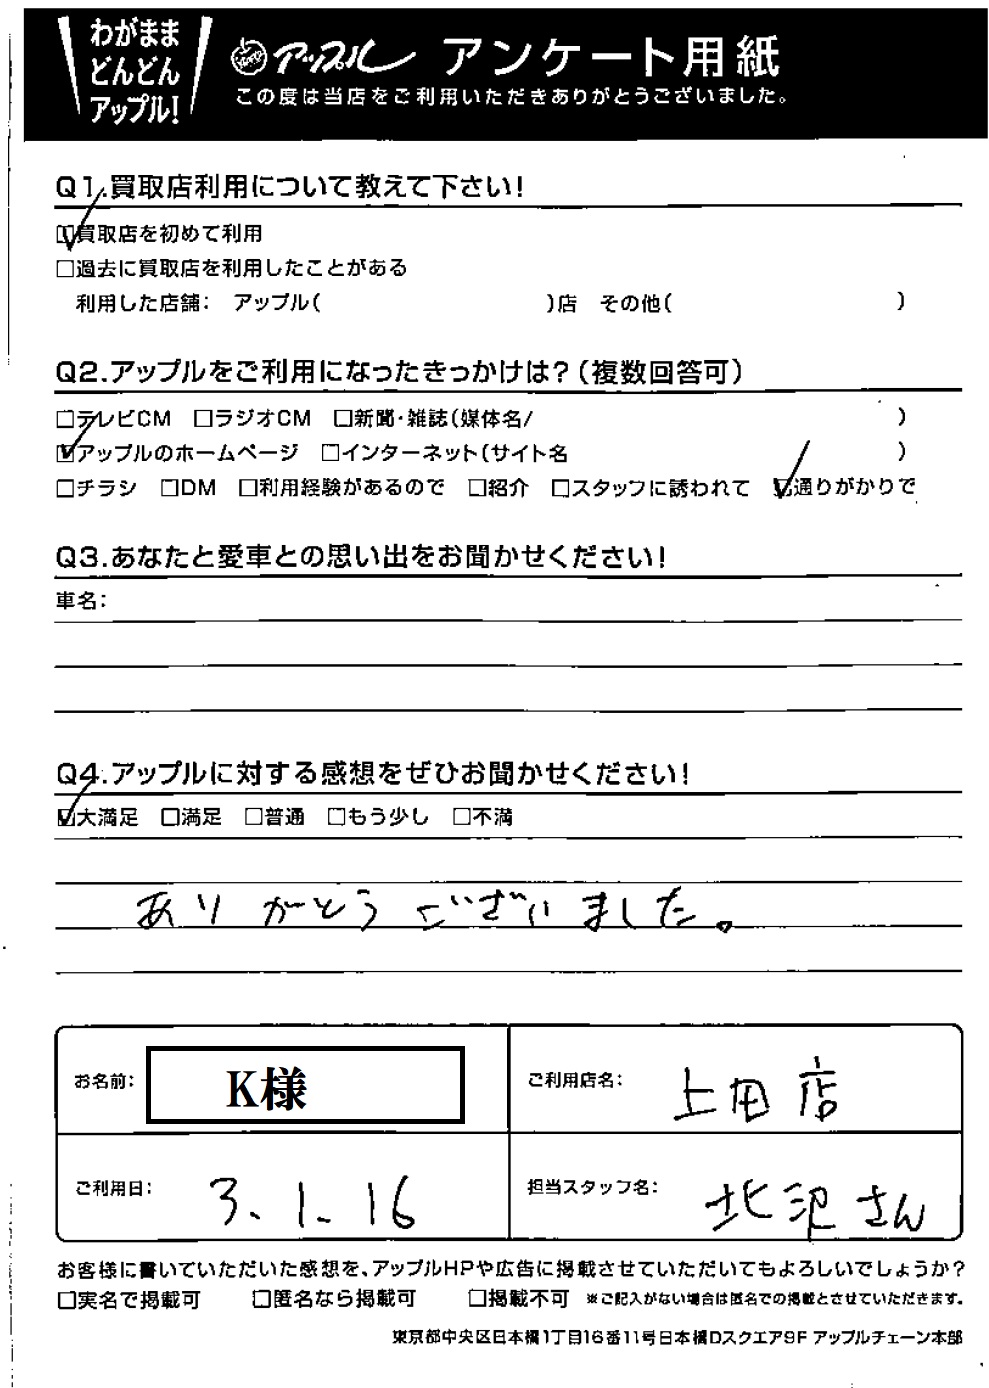 わがまま
どんどん
アップル!
アップル アンケート用紙
この度は当店をご利用いただきありがとうございました。
Q1.買取店利用について教えて下さい!
☑買取店を初めて利用
□過去に買取店を利用したことがある
利用した店舗: アップル( )店 その他( )
Q2.アップルをご利用になったきっかけは?(複数回答可)
□テレビCM □ラジオCM □新聞・雑誌(媒体名/ )
☑アップルのホームページ □インターネット(サイト名 )
□チラシ □DM □利用経験があるので □紹介 □スタッフに誘われて ☑通りがかりで
Q3.あなたと愛車との思い出をお聞かせください!
車名:
Q4.アップルに対する感想をぜひお聞かせください!
☑大満足 □満足 □普通 □もう少し □不満
ありがとうございました。
お名前: K様
ご利用店名: 上田店
ご利用日: 3.1.16
担当スタッフ名: 北沢さん
お客様に書いていただいた感想を、アップルHPや広告に掲載させていただいてもよろしいでしょうか?
□実名で掲載可 □匿名なら掲載可 □掲載不可 ※ご記入がない場合は匿名での掲載とさせていただきます。
東京都中央区日本橋1丁目16番11号日本橋Dスクエア9F アップルチェーン本部